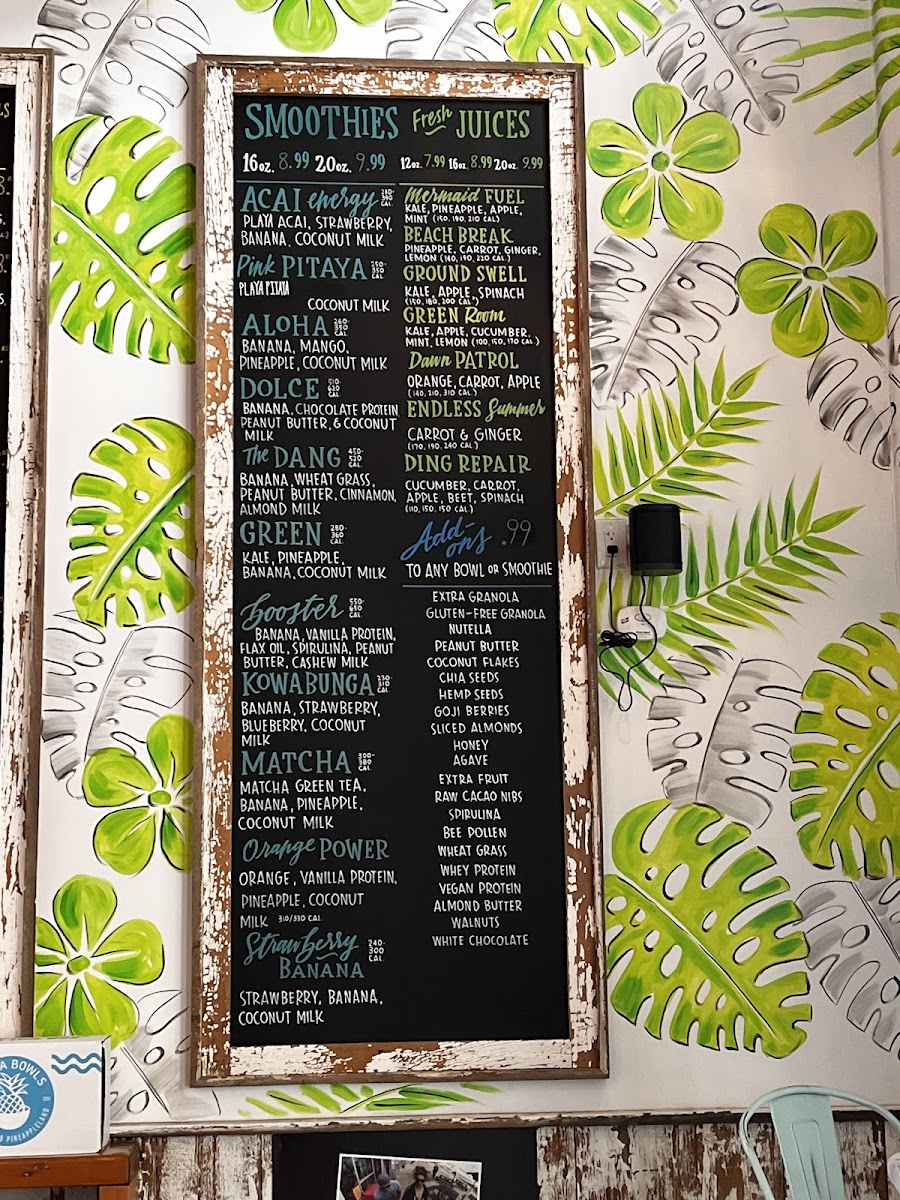 SMOOTHIES
16oz. 8.99 20oz. 9.99
ACAI energy
PLAYA ACAI, STRAWBERRY,
BANANA, COCONUT MILK
Pink PITAYA 250-350 CAL
PLAYA PITAYA
COCONUT MILK
ALOHA
BANANA, MANGO,
PINEAPPLE, COCONUT MILK
DOLCE 510-620 CAL.
BANANA, CHOCOLATE PROTEIN
PEANUT BUTTER, & COCONUT
MILK
The DANG 450-520 CAL
BANANA, WHEAT GRASS,
PEANUT BUTTER, CINNAMON,
ALMOND MILK
GREEN 280-360 CAL.
KALE, PINEAPPLE,
BANANA, COCONUT MILK
Booster 550-650 CAL
BANANA, VANILLA PROTEIN,
FLAX OIL, SPIRULINA, PEANUT
BUTTER, CASHEW MILK
KOWABUNGA 230-310 CAL.
BANANA, STRAWBERRY,
BLUEBERRY, COCONUT
MILK
MATCHA 300-380 CAL
MATCHA GREEN TEA,
BANANA, PINEAPPLE,
COCONUT MILK
Orange POWER
ORANGE, VANILLA PROTEIN,
PINEAPPLE, COCONUT
MILK 310/330 CAL
Strawberry 240-300 CAL.
BANANA
STRAWBERRY, BANANA,
COCONUT MILK
Fresh JUICES
12oz. 7.99 16oz. 8.99 20oz. 9.99
Mermaid FUEL
KALE, PINEAPPLE, APPLE,
MINT (150, 190, 210 CAL)
BEACH BREAK
PINEAPPLE, CARROT, GINGER,
LEMON (140, 190, 220 CAL.)
GROUND SWELL
KALE, APPLE, SPINACH
(150, 180, 200 CAL.)
GREEN Room
KALE, APPLE, CUCUMBER,
MINT, LEMON (100, 150, 170 CAL.)
Dawn PATROL
ORANGE, CARROT, APPLE
(140, 210, 310 CAL.)
ENDLESS Summer
CARROT & GINGER
(170, 190, 240 CAL.)
DING REPAIR
CUCUMBER, CARROT,
APPLE, BEET, SPINACH
(110, 150, 150 CAL)
Add-ons .99
TO ANY BOWL OR SMOOTHIE
EXTRA GRANOLA
GLUTEN-FREE GRANOLA
NUTELLA
PEANUT BUTTER
COCONUT FLAKES
CHIA SEEDS
HEMP SEEDS
GOJI BERRIES
SLICED ALMONDS
HONEY
AGAVE
EXTRA FRUIT
RAW CACAO NIBS
SPIRULINA
BEE POLLEN
WHEAT GRASS
WHEY PROTEIN
VEGAN PROTEIN
ALMOND BUTTER
WALNUTS
WHITE CHOCOLATE
BOWLS